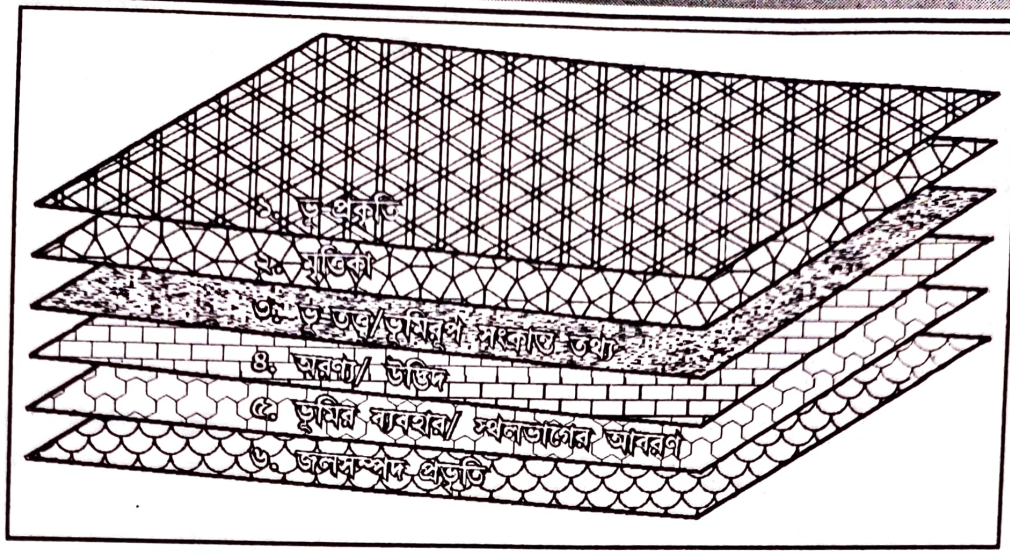 ১. ভূ-প্রকৃতি
২. মৃত্তিকা
৩. ভূ-তত্ত্ব/ভূমিরূপ সংক্রান্ত তথ্য
৪. অরণ্য/ উদ্ভিদ
৫. ভূমির ব্যবহার/ স্থলভাগের আবরণ
৬. জলসম্পদ প্রভৃতি